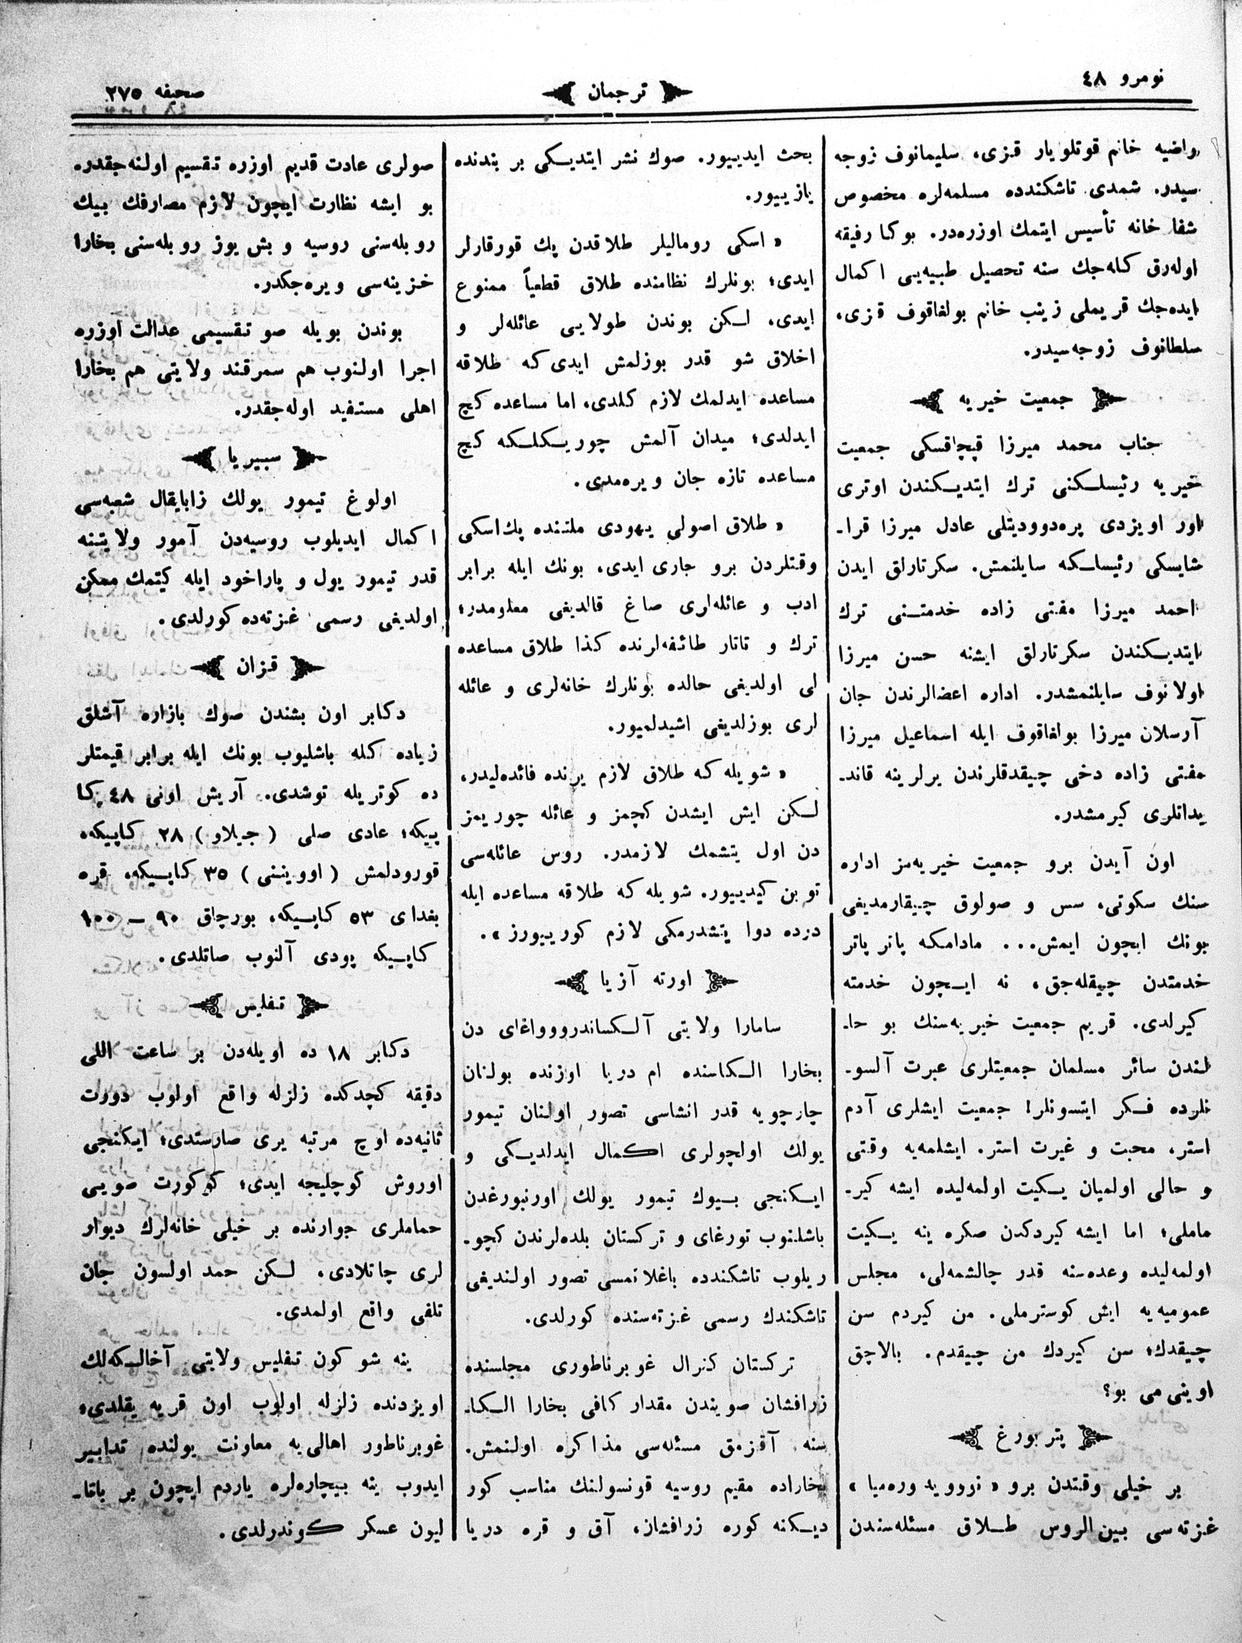 نومرو ٤٨
ترجمان
صحیفه ٢٧٥
راضیه خانم قوتلویار قزی، سلیمانوف زوجه
سیدر. شمدی تاشکندده مسلمه‌لره مخصوص
شفا خانه تأسیس ایتمك اوزره‌در. بوکا رفیقه
اوله‌رق کله‌جك سنه تحصیل طبیه‌یی اکمال
ایده‌جك قریملی زینب خانم بولغاقوف قزی،
سلطانوف زوجه‌سیدر.
جمعیت خیریه
جناب محمد میرزا قپچاقسکی جمعیت
خیریه رئیسلکنی ترك ایتدیکندن اوتری
اور اویزدی پره‌دوودیتلی عادل میرزا قرا-
شایسکی رئیسلکه سایلنمش. سکرتارلق ایدن
احمد میرزا مفتی زاده خدمتنی ترك
ایتدیکندن سکرتارلق ایشنه حسن میرزا
اولانوف سایلنمشدر. اداره اعضالرندن جان
آرسلان میرزا بولغاقوف ایله اسماعیل میرزا
مفتی زاده دخی چیقدقلرندن یرلرینه قاند-
یداتلری کیرمشدر.
اون آیدن برو جمعیت خیریه‌مز اداره
سنك سکوتی، سس و صولوق چیقارمدیغی
بونك ایچون ایمش... مادامکه پاتر پاتر
خدمتدن چیقله‌جق، نه ایچون خدمته
کیرلدی. قریم جمعیت خیریه‌سنك بو حا-
لندن سائر مسلمان جمعیتلری عبرت آلسو-
نلرده فکر ایتسونلر! جمعیت ایشلری آدم
استر، محبت و غیرت استر. ایشلمه‌یه وقتی
و حالی اولمیان یکیت اولمه‌لیده ایشه کیر-
ماملی؛ اما ایشه کیردکدن صکره ینه یکیت
اولمه‌لیده وعده‌سنه قدر چالشمه‌لی، مجلس
عمومیه‌یه ایش کوسترملی. من کیردم سن
چیقدك؛ سن کیردك من چیقدم. بالاچق
اوینی می بو؟
پتربورغ
بر خیلی وقتدن برو «نوووید وره‌میا»
غزته‌سی بین الروس طلاق مسئله‌سندن
بحث ایدییور. صوك نشر ایتدیکی بر بندنده
یازییور.
«اسکی رومالیلر طلاقدن پك قورقارلر
ایدی؛ بونلرك نظامنده طلاق قطعیاً ممنوع
ایدی، لکن بوندن طولایی عائله‌لر و
اخلاق شو قدر بوزلمش ایدی که طلاقه
مساعده ایدلمك لازم کلدی، اما مساعده کچ
ایدلدی؛ میدان آلمش چوریکلکه کچ
مساعده تازه جان ویره‌مدی.
«طلاق اصولی یهودی ملتنده پك اسکی
وقتلردن برو جاری ایدی، بونك ایله برابر
ادب و عائله‌لری صاغ قالدیغی معلومدر؛
ترك و تاتار طائفه‌لرنده کذا طلاق مساعده
لی اولدیغی حالده بونلرك خانه‌لری و عائله
لری بوزلدیغی اشیدلمیور.
«شویله که طلاق لازم یرنده فائده‌لیدر،
لکن ایش ایشدن کچمز و عائله چوریمز
دن اول یتشمك لازمدر. روس عائله‌سی
توبن کیدییور. شویله که طلاقه مساعده ایله
درده دوا یتشدرمکی لازم کورییورز».
اورته آزیا
سامارا ولایتی آلکساندرووواغای دن
بخارا الکاسنده ام دریا اوزنده بولنان
چارچویه قدر انشاسی تصور اولنان تیمور
یولك اولچولری اکمال ایدلدیکی و
ایکنجی بیوك تیمور یولك اورنبورغدن
باشلنوب تورغای و ترکستان بلده‌لرندن کچو-
ریلوب تاشکندده باغلانمسی تصور اولندیغی
تاشکندك رسمی غزته‌سنده کورلدی.
ترکستان کنرال غوبرناطوری مجلسنده
زرافشان صویندن مقدار کافی بخارا الکا-
سنه آقزمق مسئله‌سی مذاکره اولنمش.
بخاراده مقیم روسیه قونسولنك مناسب کور
دیکنه کوره زرافشان، آق و قره دریا
صولری عادت قدیم اوزره تقسیم اولنه‌جقدر.
بو ایشه نظارت ایچون لازم مصارفك بیك
روبله‌سنی روسیه و بش یوز روبله‌سنی بخارا
خزینه‌سی ویره‌جکدر.
بوندن بویله صو تقسیمی عدالت اوزره
اجرا اولنوب هم سمرقند ولایتی هم بخارا
اهلی مستفید اوله‌جقدر.
سبیریا
اولوغ تیمور یولك زابایقال شعبه‌سی
اکمال ایدیلوب روسیه‌دن آمور ولایتنه
قدر تیمور یول و پاراخود ایله کیتمك ممکن
اولدیغی رسمی غزته‌ده کورلدی.
قزان
دکابر اون بشندن صوك بازاره آشلق
زیاده کله باشلیوب بونك ایله برابر قیمتلر
ده کوتریله توشدی. آریش اونی ٤٨ کا
پیکه؛ عادی صلی (جیلاو) ٢٨ کاپیکه،
قورودلمش (اووینننی) ٣٥ کاپیکه، قره
بغدای ٥٣ کاپیکه، بورچاق ٩٠ – ١٠٠
کاپیکه پودی آلنوب صاتلدی.
تفلیس
دکابر ١٨ ده اویله‌دن بر ساعت اللی
دقیقه کچدکده زلزله واقع اولوب دورت
ثانیه‌ده اوچ مرتبه یری صارستدی؛ ایکنجی
اوروش کوچلیجه ایدی؛ کوکورت صویی
حماملری جوارنده بر خیلی خانه‌لرك دیوار
لری چاتلادی. لکن حمد اولسون جان
تلفی واقع اولمدی.
ینه شو کون تفلیس ولایتی آخالکه‌لك
اویزدنده زلزله اولوب اون قریه یقلدی؛
غوبرناطور اهالی‌یه معاونت یولنده تدابیر
ایدوب ینه بیچاره‌لره یاردم ایچون بر باتا-
لیون عسکر کوندرلدی.